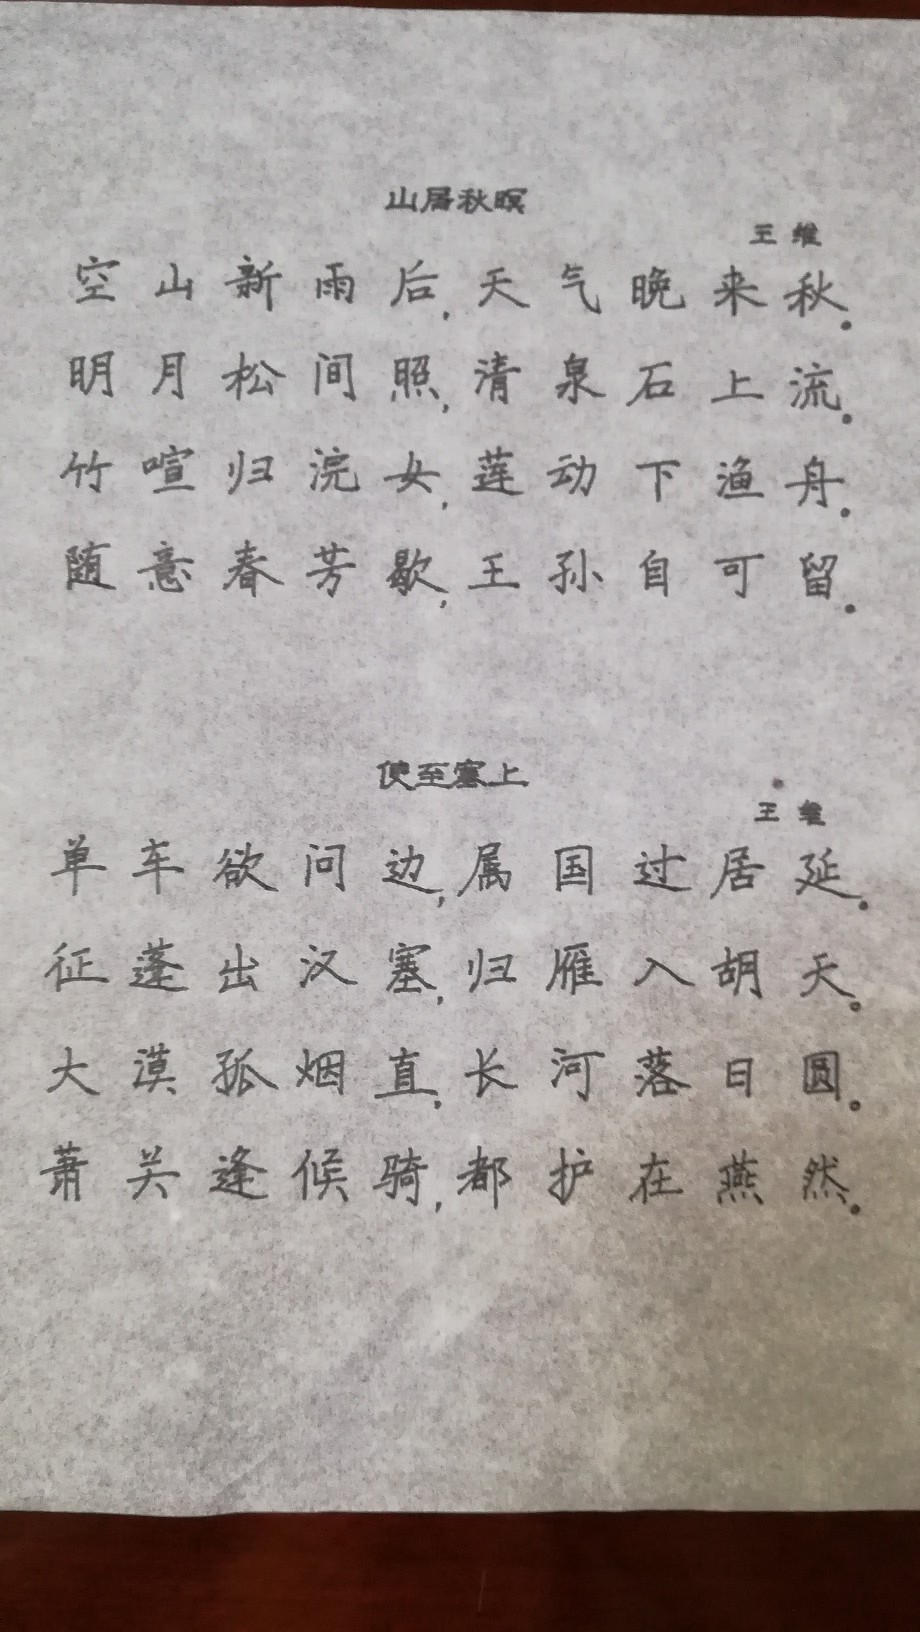 山居秋暝
王维
空山新雨后,天气晚来秋。
明月松间照,清泉石上流。
竹喧归浣女,莲动下渔舟。
随意春芳歇,王孙自可留。
使至塞上
王维
单车欲问边,属国过居延。
征蓬出汉塞,归雁入胡天。
大漠孤烟直,长河落日圆。
萧关逢候骑,都护在燕然。